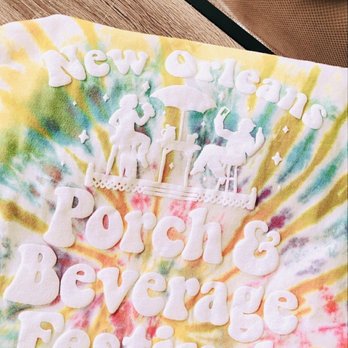 New Orleans
Porch &
Beverage
Festival